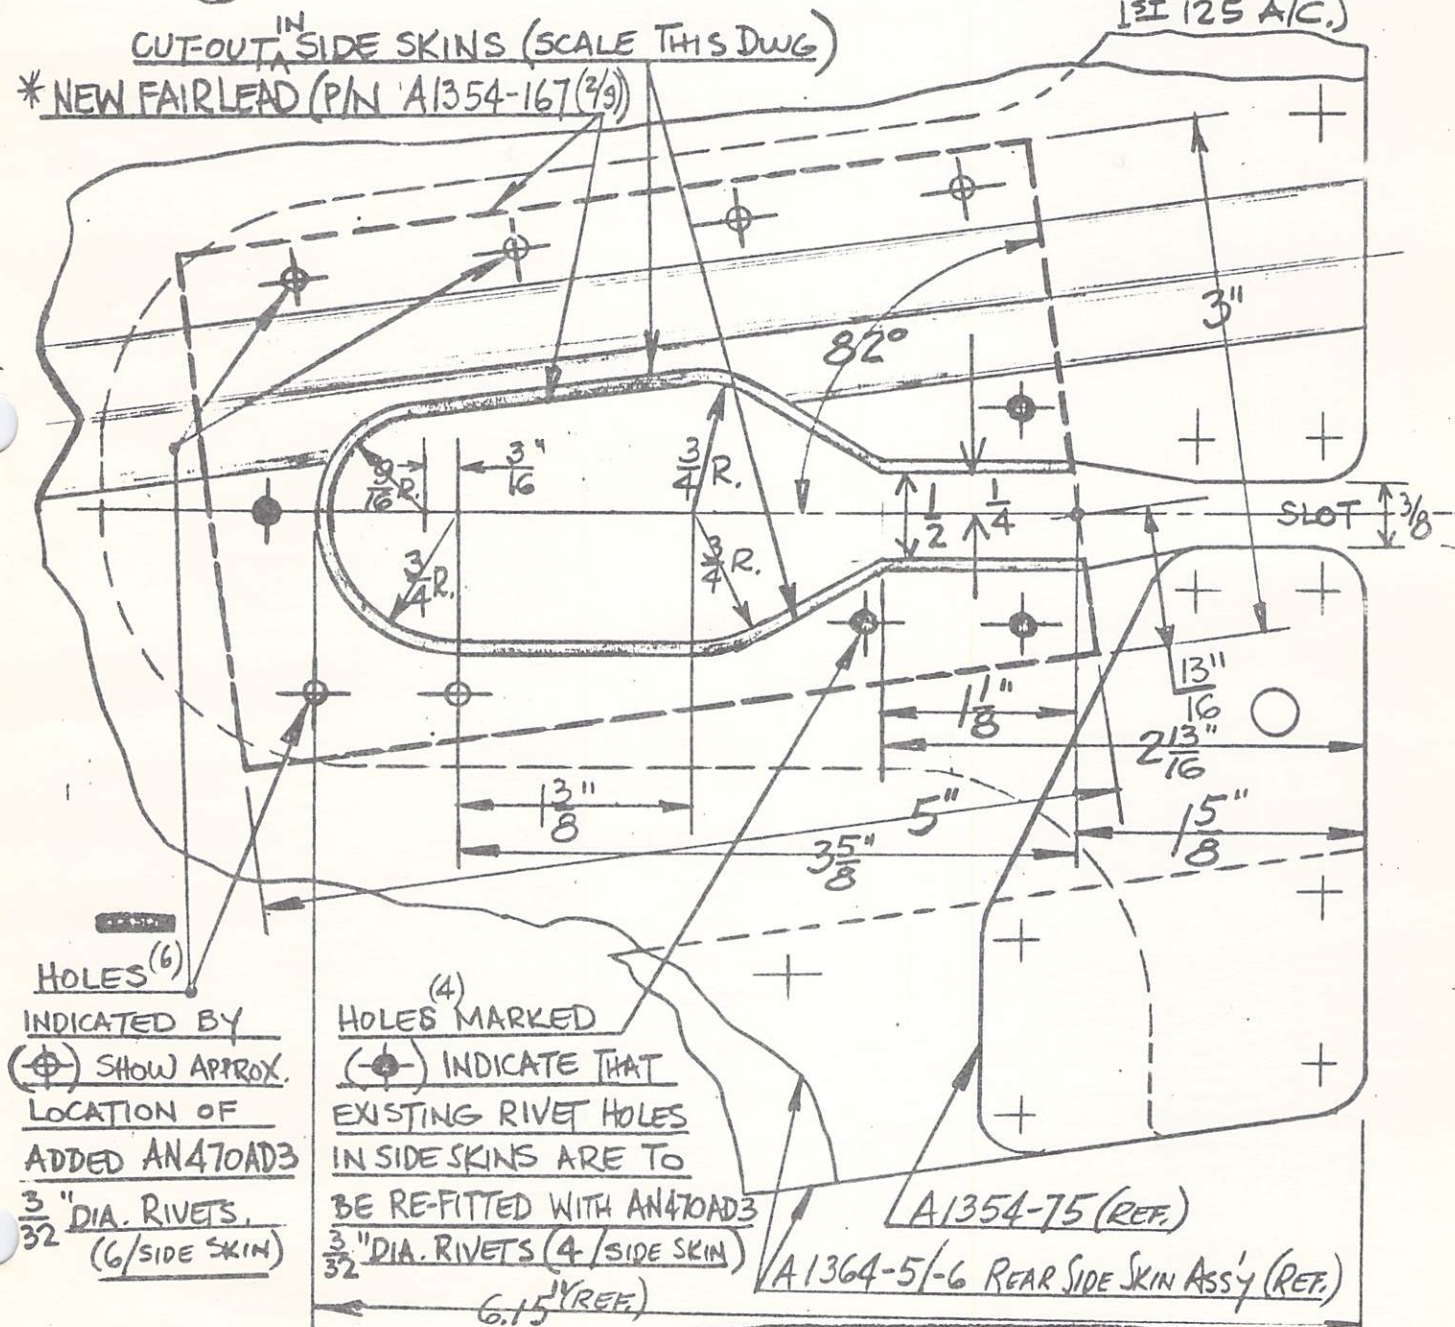 1ST 125 A/C.)
IN
CUT-OUT SIDE SKINS (SCALE THIS DWG)
* NEW FAIRLEAD (P/N A1354-167(2/9))
3"
82°
9/16 R.
3/16"
3/4 R.
1/2
1/4
SLOT
3/8
3/4 R.
3/4 R.
13/16"
1 1/8"
2 13/16"
1 3/8"
5"
3 5/8"
1 5/8"
HOLES (6)
INDICATED BY
( ) SHOW APPROX.
LOCATION OF
ADDED AN470AD3
3/32" DIA. RIVETS.
(6/SIDE SKIN)
(4)
HOLES MARKED
( ) INDICATE THAT
EXISTING RIVET HOLES
IN SIDE SKINS ARE TO
BE RE-FITTED WITH AN470AD3
3/32" DIA. RIVETS (4/SIDE SKIN)
A1354-75 (REF.)
A1364-5/-6 REAR SIDE SKIN ASS'Y (REF.)
6.15" (REF.)